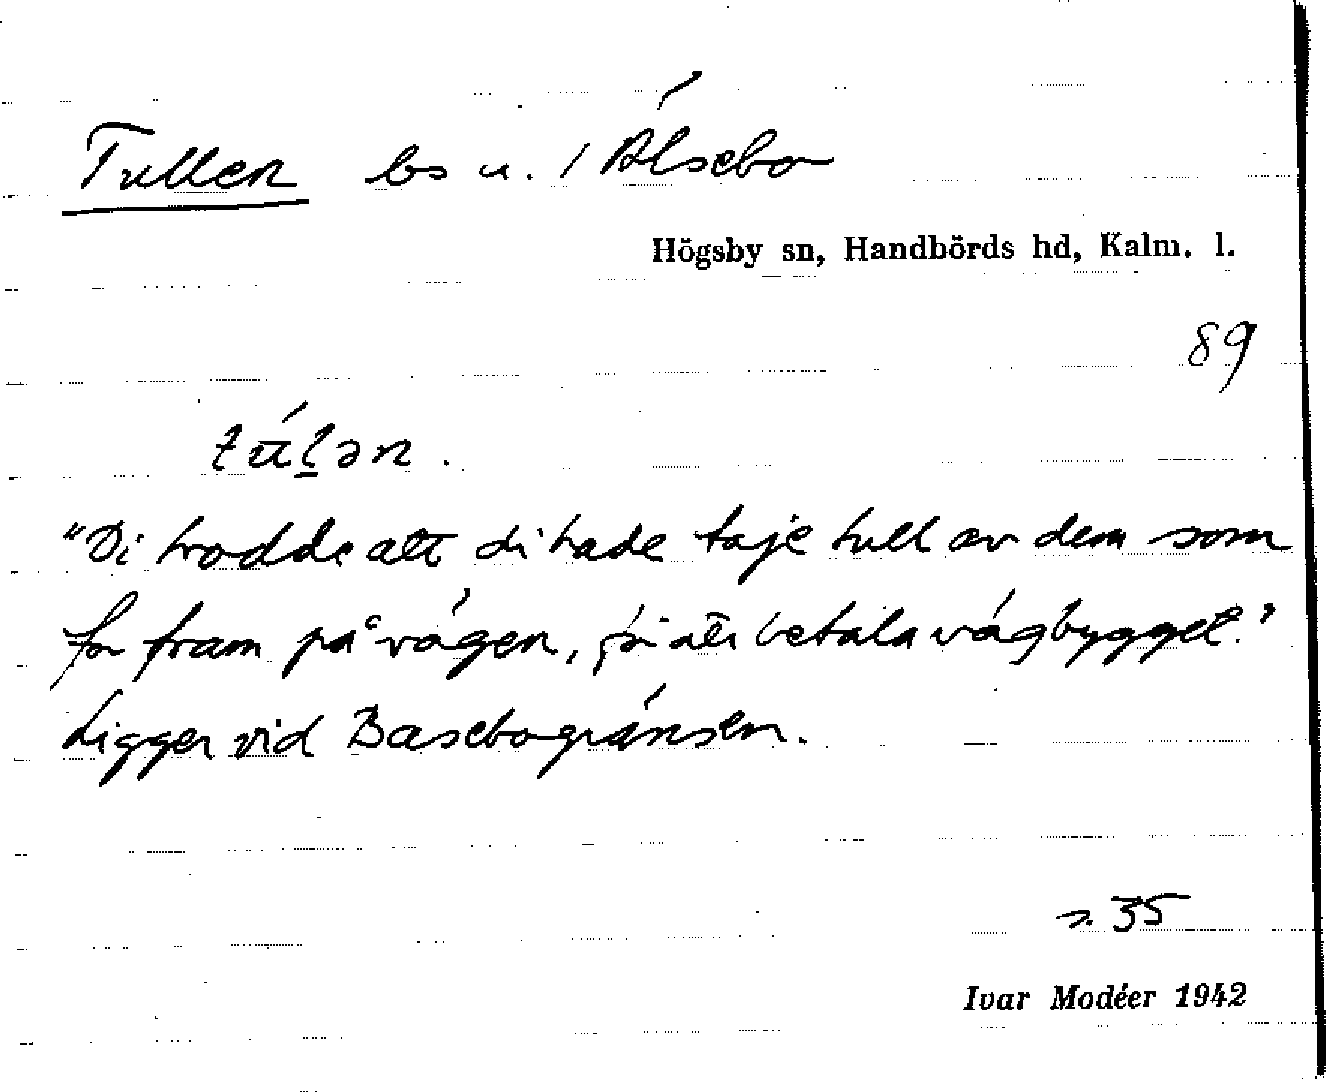 Tullen bs u. / Älsebo
Högsby sn, Handbörds hd, Kalm. l.
89
tú̄l̠ən.
"Di trodde att di hade taje tull av dem som
for fram på vägen, för att betala vägbygget."
Ligger vid Basebogränsen.
s. 35
Ivar Modéer 1942